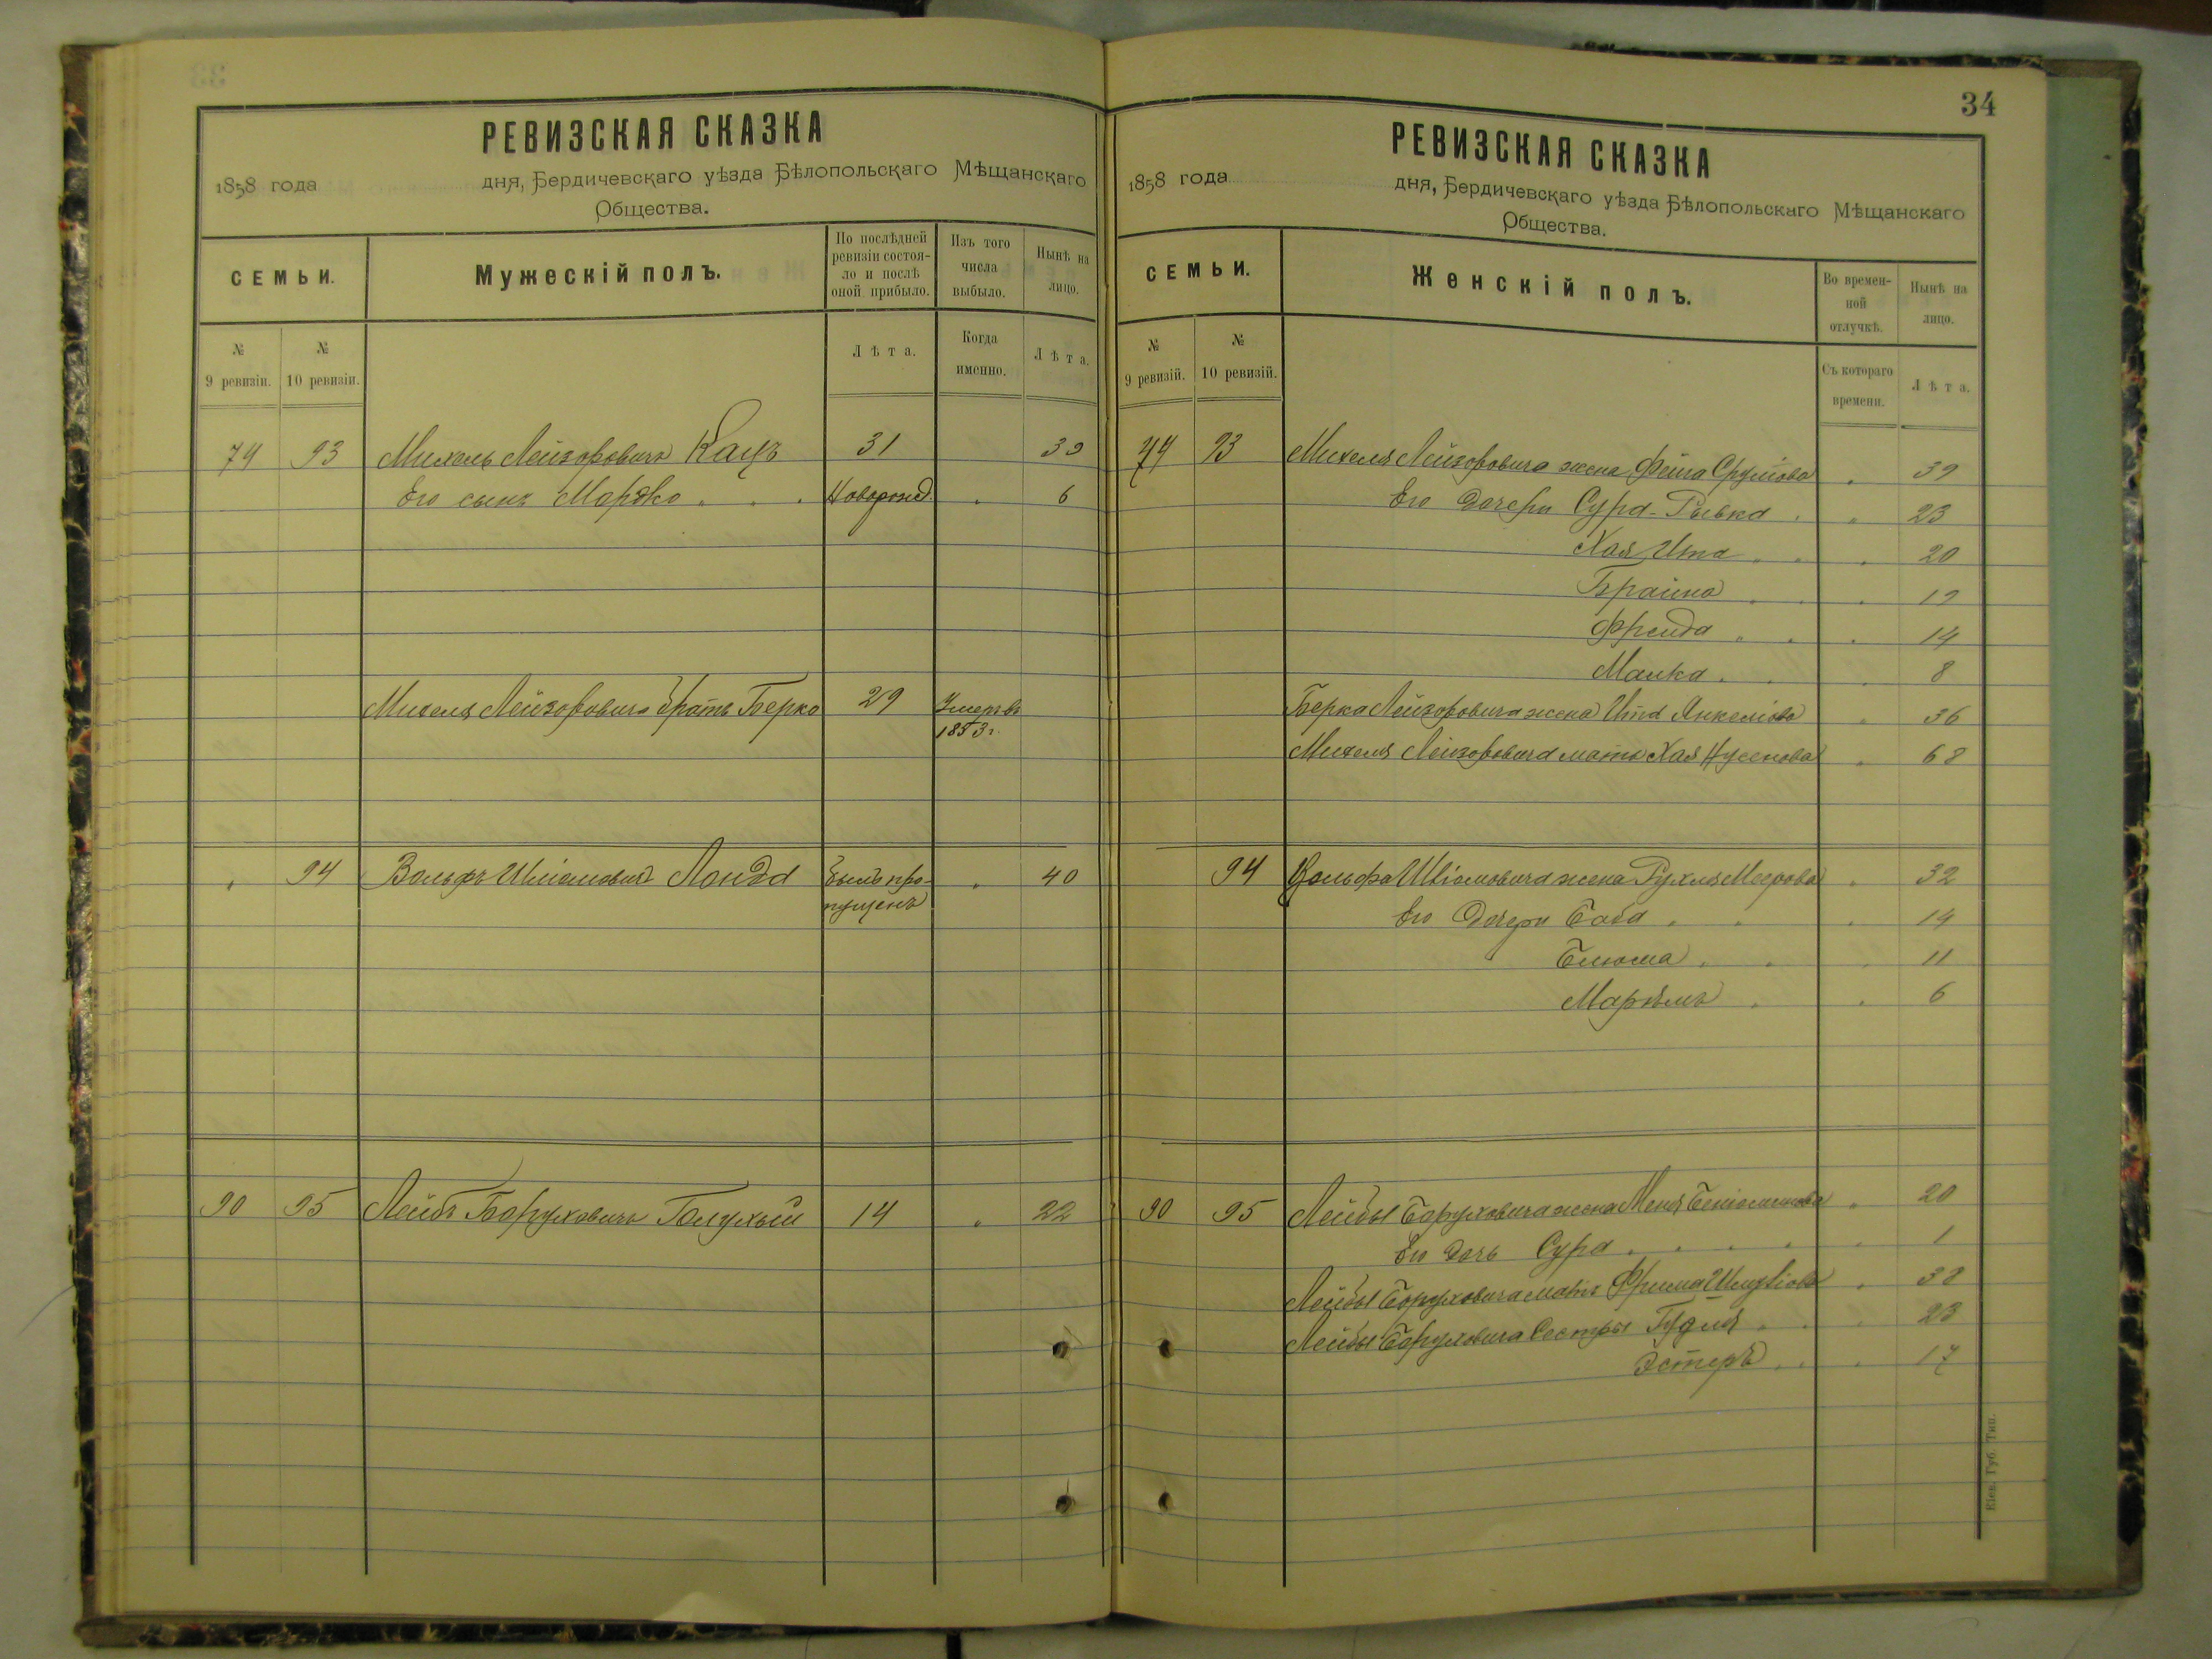 РЕВИЗСКАЯ СКАЗКА
1858 года дня, Бердичевскаго уѣзда Бѣлопольскаго Мѣщанскаго
Общества.
СЕМЬИ.
Мужескій полъ.
По послѣдней ревизіи состоя-ло и послѣ оной прибыло.
Изъ того числа выбыло.
Нынѣ на лицо.
№ 9 ревизіи.
№ 10 ревизіи.
Лѣта.
Когда именно.
Лѣта.
74 93 Михель Лейзоровичъ Кацъ 31 39
Его сынъ Марко Новорожд. 6
Михеля Лейзоровича братъ Берко 29 Умеръ въ
1853 г.
94 Вольфъ Лонда былъ про- 40
пущенъ
90 95 Лейбъ Боруховичъ Голухый 14 22
34
РЕВИЗСКАЯ СКАЗКА
1858 года дня, Бердичевскаго уѣзда Бѣлопольскаго Мѣщанскаго
Общества.
СЕМЬИ.
Женскій полъ.
Во времен-ной отлучкѣ.
Нынѣ на лицо.
№ 9 ревизій.
№ 10 ревизій.
Съ котораго времени.
Лѣта.
74 93 Михеля Лейзоровича жена Фейга Срулiова 39
Его дочери Сура-Рывка 23
Хая Ита 20
Брайна 19
Фрейда 14
Малка 8
Берка Лейзоровича жена Ита Янкелiова 36
Михеля Лейзоровича мать Хая Нусенова 68
94 Вольфа жена Рухля Меерова 32
Его дочери Баба 14
Блюма 11
Маріямъ 6
90 95 Лейбы Боруховича жена Меня Беніоминова 20
Его дочь Сура 1
Лейбы Боруховича мать Фрима 38
Лейбы Боруховича сестры Гудля 23
Эстеръ 17
Кіев. Губ. Тип.